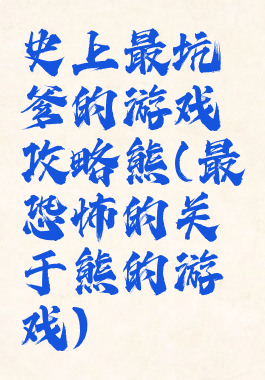 史上最坑
爹的游戏
攻略熊(最
恐怖的关
于熊的游
戏)